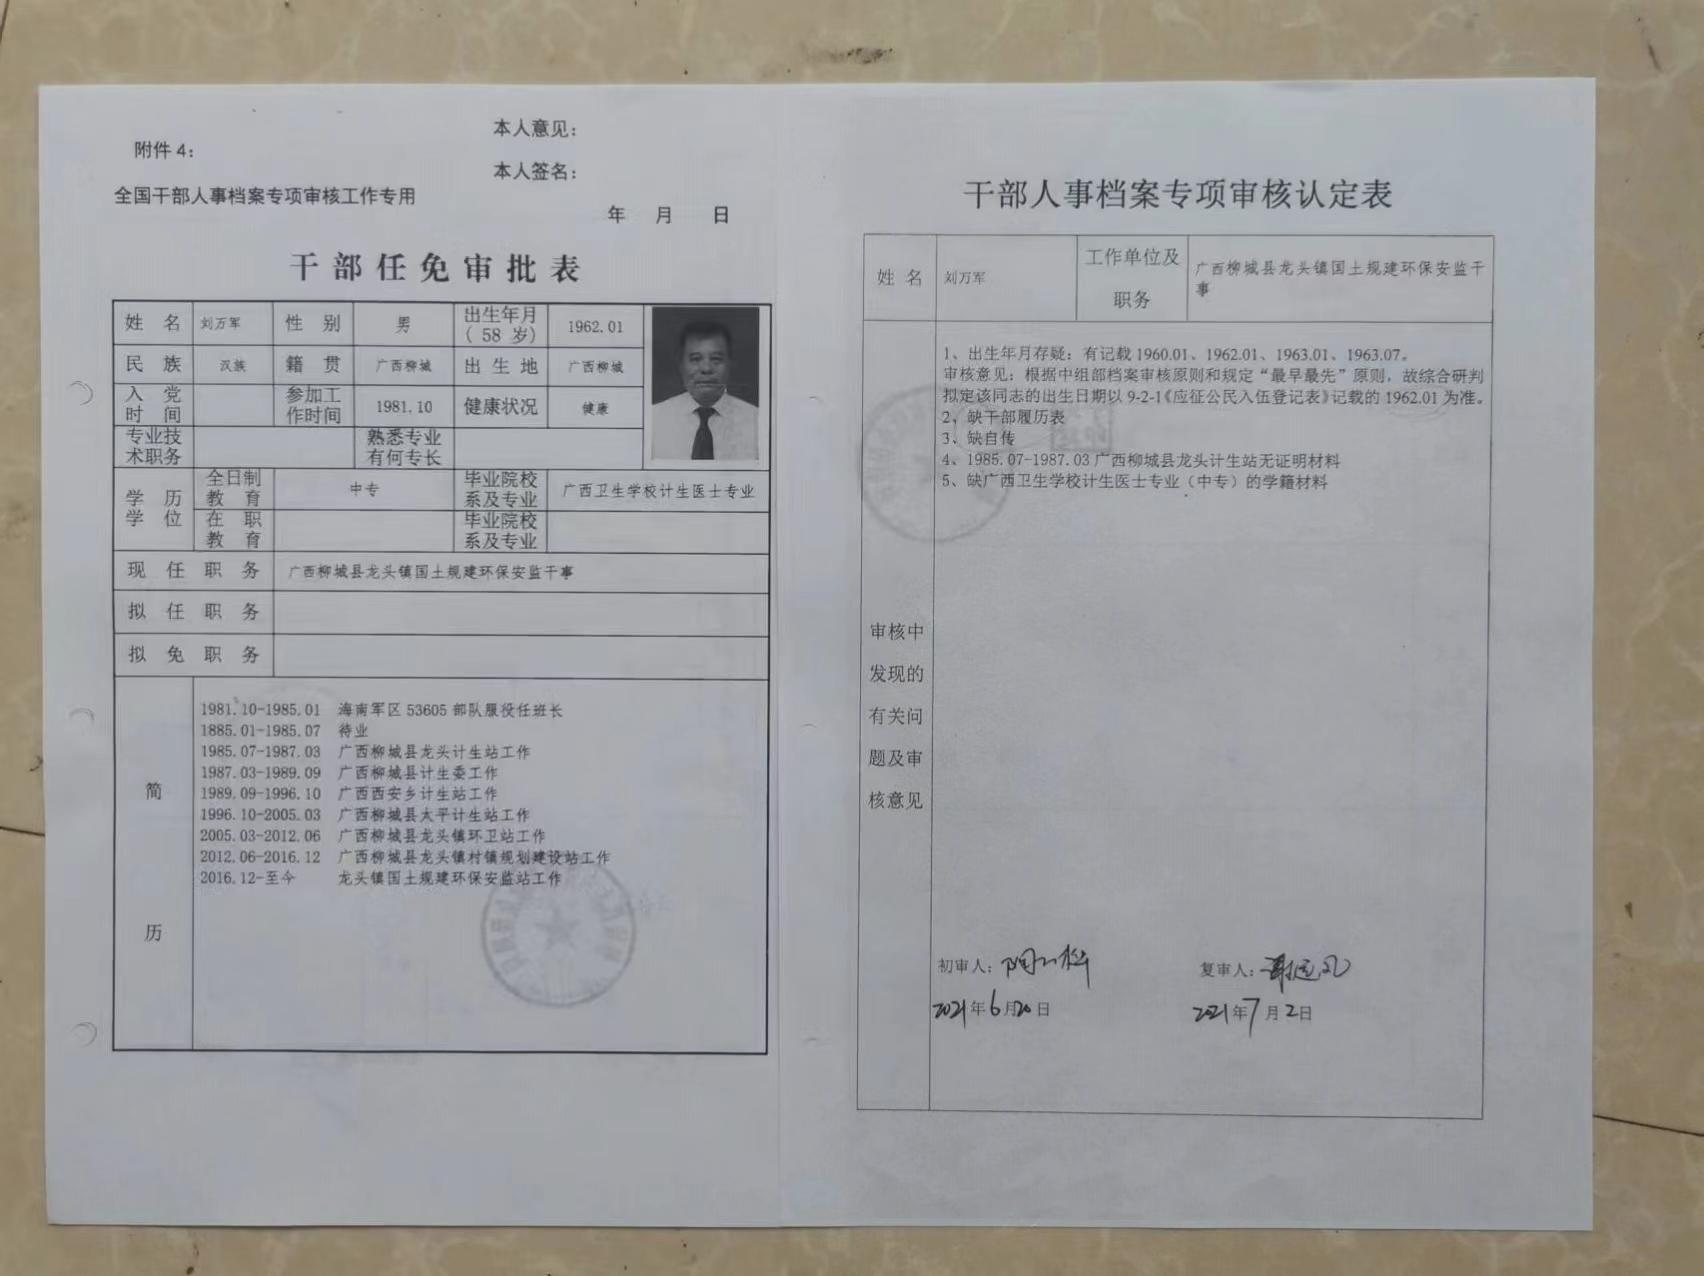 附件 4:
本人意见:
本人签名:
全国干部人事档案专项审核工作专用
年 月 日
干部任免审批表
姓 名 刘万军 性 别 男 出生年月 ( 58 岁) 1962.01
民 族 汉族 籍 贯 广西柳城 出 生 地 广西柳城
入 党 时 间 参加工作时间 1981.10 健康状况 健康
专业技术职务 熟悉专业有何专长
学 历 学 位 全日制教 育 中专 毕业院校系及专业 广西卫生学校计生医士专业
在 职 教 育 毕业院校系及专业
现 任 职 务 广西柳城县龙头镇国土规建环保安监干事
拟 任 职 务
拟 免 职 务
简 历
1981.10-1985.01 海南军区 53605 部队服役任班长
1885.01-1985.07 待业
1985.07-1987.03 广西柳城县龙头计生站工作
1987.03-1989.09 广西柳城县计生委工作
1989.09-1996.10 广西西安乡计生站工作
1996.10-2005.03 广西柳城县太平计生站工作
2005.03-2012.06 广西柳城县龙头镇环卫站工作
2012.06-2016.12 广西柳城县龙头镇村镇规划建设站工作
2016.12-至今 龙头镇国土规建环保安监站工作
干部人事档案专项审核认定表
姓 名 刘万军 工作单位及职务 广西柳城县龙头镇国土规建环保安监干事
审核中发现的有关问题及审核意见
1、出生年月存疑: 有记载 1960.01、1962.01、1963.01、1963.07。
审核意见: 根据中组部档案审核原则和规定“最早最先”原则, 故综合研判
拟定该同志的出生日期以 9-2-1《应征公民入伍登记表》记载的 1962.01 为准。
2、缺干部履历表
3、缺自传
4、1985.07-1987.03 广西柳城县龙头计生站无证明材料
5、缺广西卫生学校计生医士专业（中专）的学籍材料
初审人: 复审人:
2021年6月20日 2021年7月2日